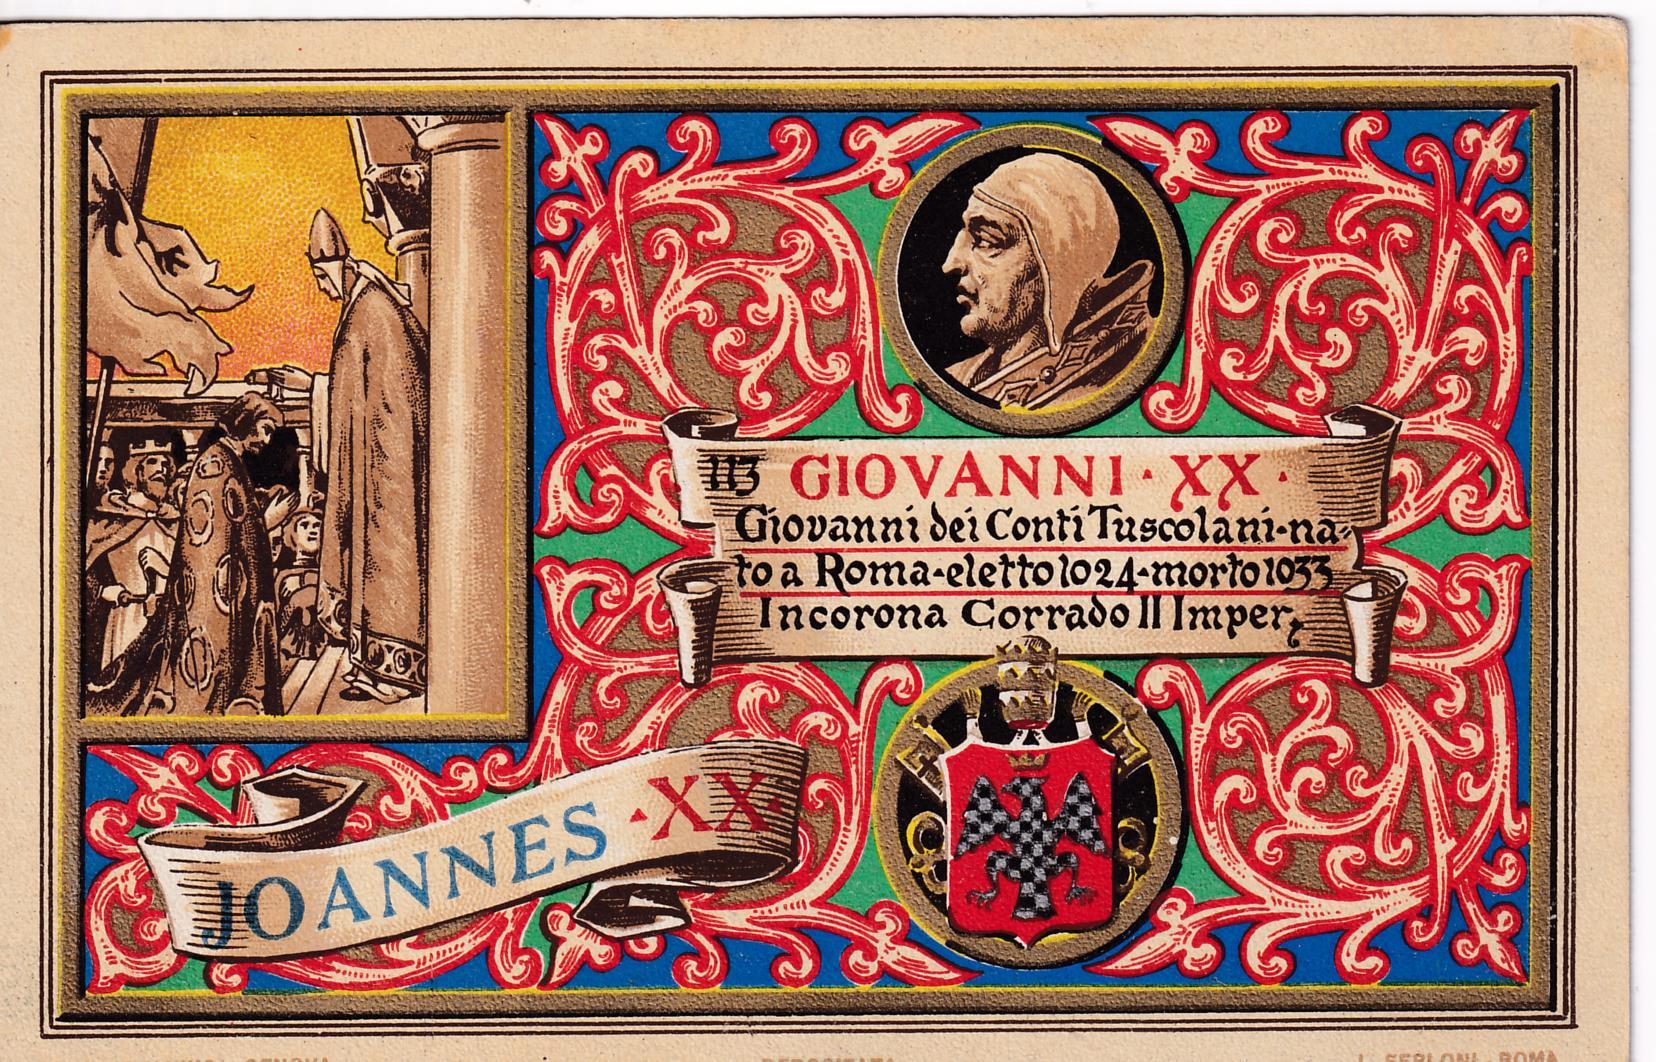 113 GIOVANNI · XX ·
Giovanni dei Conti Tuscolani-na-
to a Roma-eletto 1024-morto 1033
Incorona Corrado II Imper.
JOANNES · XX ·
GENOVA
DEPOSITATA
ROMA